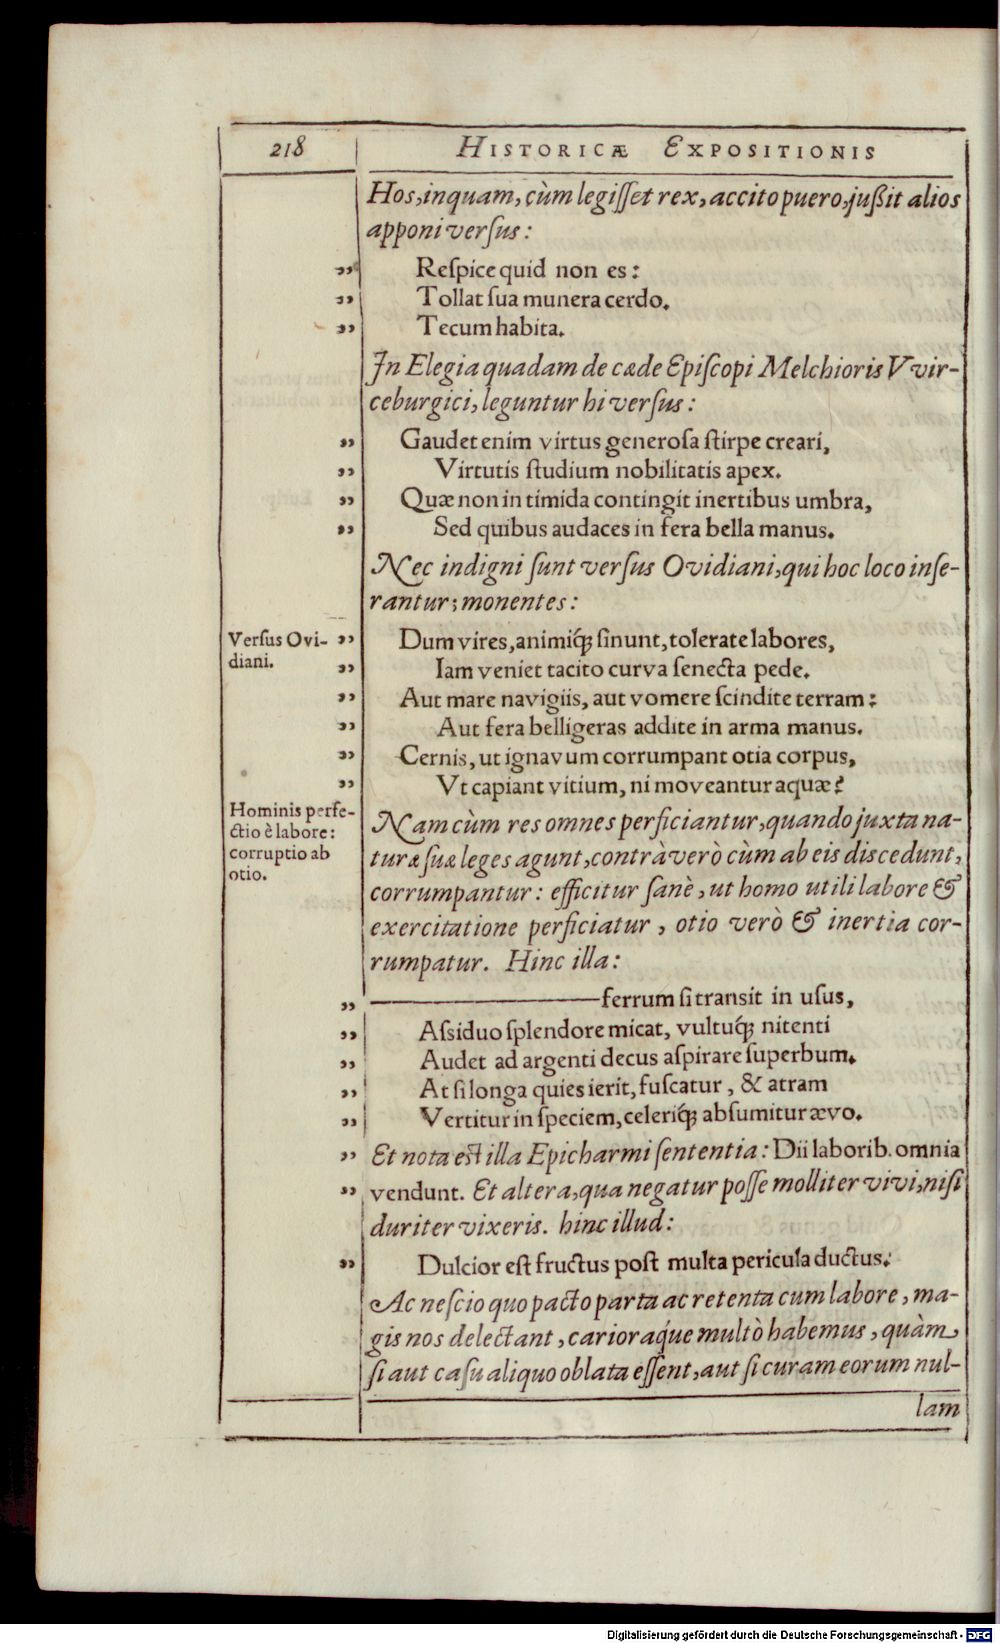 218
HISTORICÆ EXPOSITIONIS
Hos, inquam, cùm legiſſet rex, accito puero, juſsit alios
apponi verſus:
„ Reſpice quid non es:
„ Tollat ſua munera cerdo.
„ Tecum habita.
In Elegia quadam de cæde Epiſcopi Melchioris VVir-
ceburgici, leguntur hi verſus:
„ Gaudet enim virtus generoſa ſtirpe creari,
„ Virtutis ſtudium nobilitatis apex.
„ Quæ non in timida contingit inertibus umbra,
„ Sed quibus audaces in fera bella manus.
Nec indigni ſunt verſus Ovidiani, qui hoc loco inſe-
rantur; monentes:
Verſus Ovi-
diani.
„ Dum vires, animiq́; ſinunt, tolerate labores,
„ Iam veniet tacito curva ſenecta pede.
„ Aut mare navigiis, aut vomere ſcindite terram:
„ Aut fera belligeras addite in arma manus.
„ Cernis, ut ignavum corrumpant otia corpus,
„ Vt capiant vitium, ni moveantur aquæ?
Hominis perfe-
ctio è labore:
corruptio ab
otio.
Nam cùm res omnes perficiantur, quando juxta na-
turæ ſuæ leges agunt, contrà verò cùm ab eis discedunt,
corrumpantur: efficitur ſanè, ut homo utili labore &
exercitatione perficiatur, otio verò & inertia cor-
rumpatur. Hinc illa:
„ ———ferrum ſi transit in uſus,
„ Aſſiduo ſplendore micat, vultuq́; nitenti
„ Audet ad argenti decus aſpirare ſuperbum.
„ At ſi longa quies ierit, fuſcatur, & atram
„ Vertitur in ſpeciem, celeriq́; abſumitur ævo.
„ Et nota eſt illa Epicharmi ſententia: Dii laborib. omnia
„ vendunt. Et altera, qua negatur poſſe molliter vivi, niſi
duriter vixeris. hinc illud:
„ Dulcior eſt fructus poſt multa pericula ductus.
Ac neſcio quo pacto parta ac retenta cum labore, ma-
gis nos delectant, carioraq́ue multò habemus, quàm
ſi aut caſu aliquo oblata eſſent, aut ſi curam eorum nul-
lam
Digitalisierung gefördert durch die Deutsche Forschungsgemeinschaft - DFG